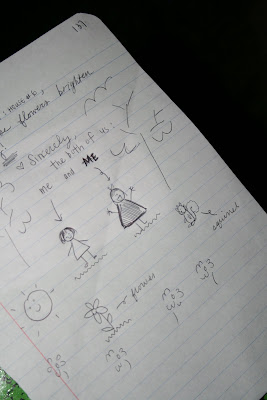 137
: HOUSE #6,
se flowers brighten
♥ Sincerely,
the both of us:
me and ME
squirrel
flowers